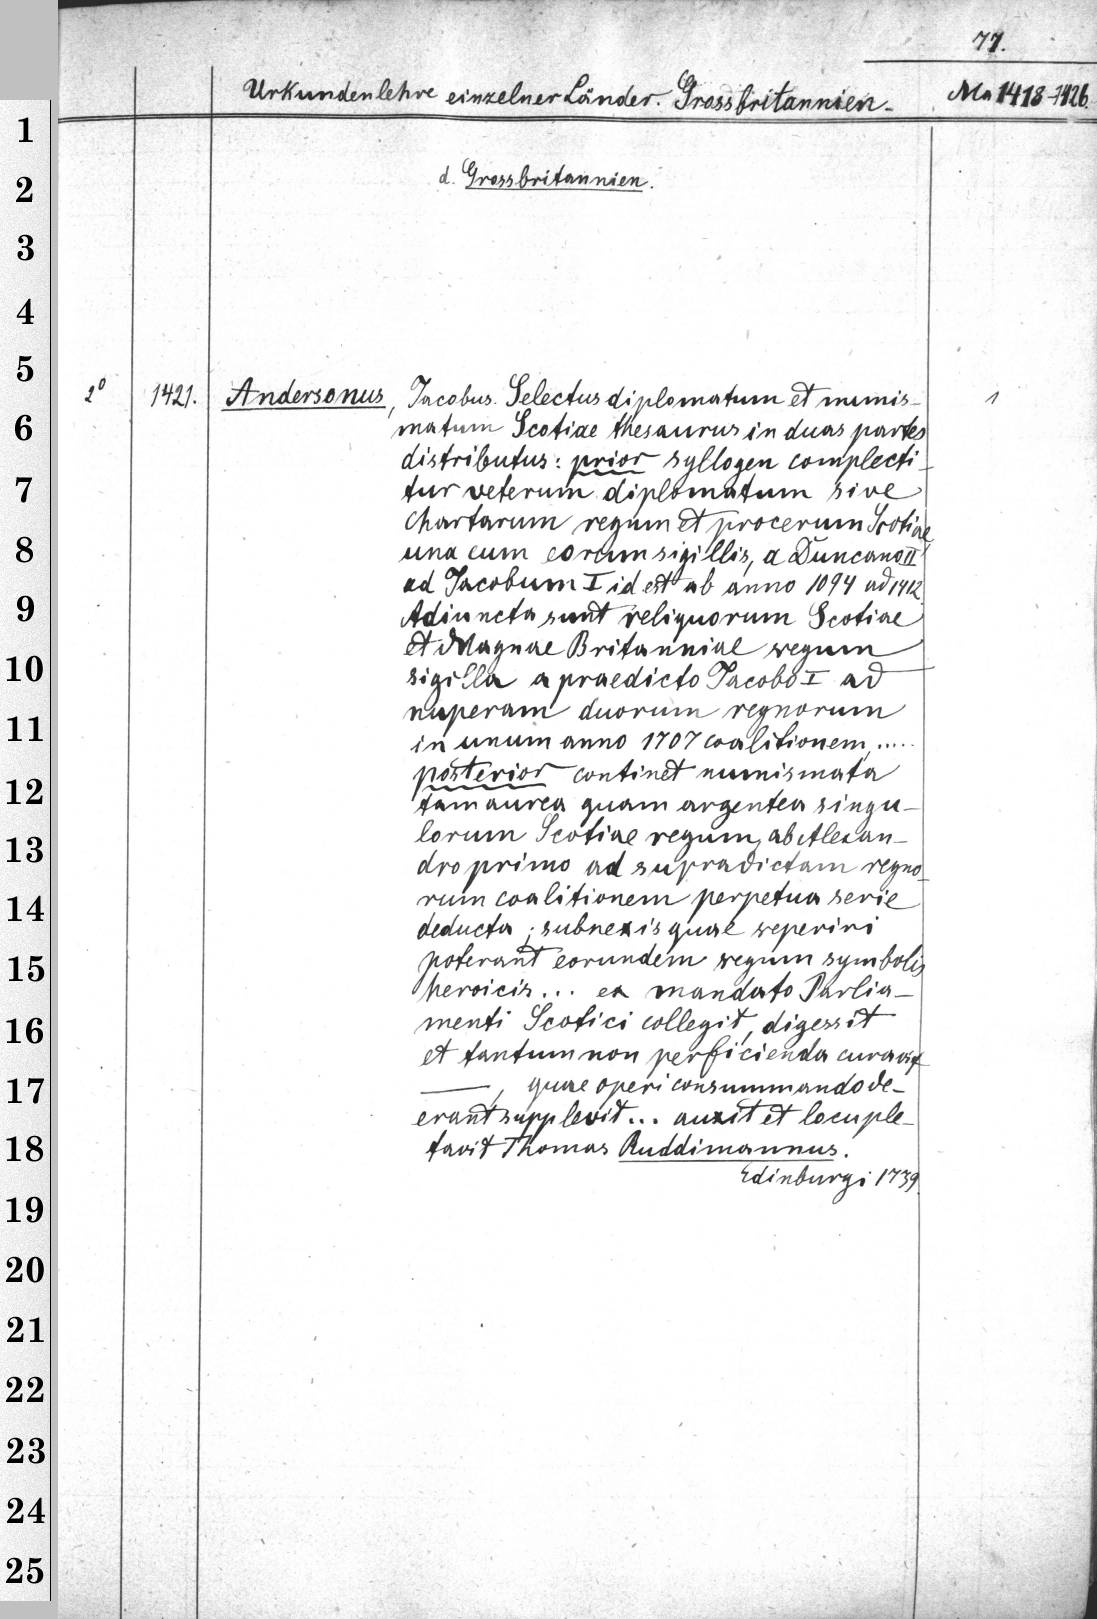 77.
Urkundenlehre einzelner Länder. Grossbritannien. Ma 1418-1426.
1
2
3
4
5
6
7
8
9
10
11
12
13
14
15
16
17
18
19
20
21
22
23
24
25
d. Grossbritannien.
2° 1421. Andersonus, Jacobus. Selectus diplomatum et numis- 1
matum Scotiae thesaurus in duas partes
distributus: prior syllogen complecti-
tur veterum diplomatum sive
chartarum regum et procerum Scotiae
una cum eorum sigillis, a Duncano II
ad Jacobum I id est ab anno 1094 ad 1412.
Adiuncta sunt reliquorum Scotiae
et Magnae Britanniae regum
sigilla a praedicto Jacobo I ad
nuperam duorum regnorum
in unum anno 1707 coalitionem, .....
posterior continet numismata
tam aurea quam argentea singu-
lorum Scotiae regum, ab Alexan-
dro primo ad supradictam regno-
rum coalitionem perpetua serie
deducta; subnexis quae reperiri
poterant eorundem regum symbolis
heroicis... ex mandato Parlia-
menti Scotici collegit, digessit
et tantum non perficienda curavit
——, quae operi consummando de-
erant supplevit... auxit et locuple-
tavit Thomas Ruddimannus.
Edinburgi 1739.